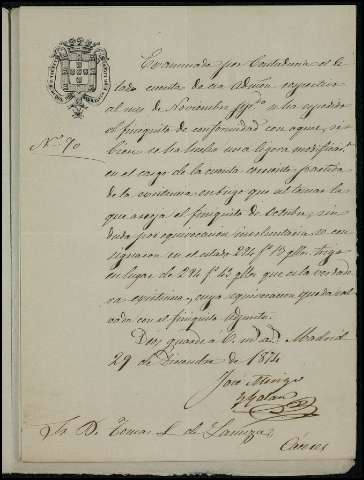 Nº 70
Examinada por Contaduria el es-
tado cuenta de esa Admon respectiva
al mes de Noviembre ppdo se ha expedido
el finiquito de conformidad con aquel, si
bien se ha hecho una ligera modificacn
en el cargo de la cuenta corriente
de la existencia en trigo que al tomar la
que arroja el finiquito de Octubre, sin
duda por equivocacion involuntaria se con-
signaron en el estado 224 fs 13 qllos trigo
en lugar de 224 fs 43 qllos que era la verdade-
ra existencia, cuya equivocacion queda sal-
vada con el finiquito adjunto.
Dios guarde á V. m. as. Madrid
29 de Diciembre de 1874
José
Galan
Sr. D. Tomas L. de